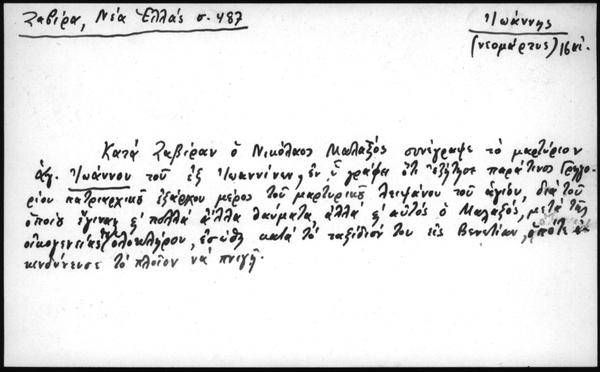 Ζαβίρα, Νέα Ἑλλάς σ. 487
Ἰωάννης
(νεομάρτυς) 16 αἰ.
Κατά Ζαβίραν ὁ Νικόλαος Μαλαξός συνέγραψε τό μαρτύριον
ἁγ. Ἰωάννου τοῦ ἐξ Ἰωαννίνων, ἐν ᾧ γράφει ὅτι ἐζήτησε παρά τινος Γρηγο-
ρίου πατριαρχικοῦ ἐξάρχου μέρος τοῦ μαρτυρικοῦ λειψάνου τοῦ ἁγίου, διά τοῦ
ὁποίου ἔγιναν καί πολλά ἄλλα θαύματα, ἀλλά καί αὐτός ὁ Μαλαξός, μετά τῆς
οἰκογενείας του ὁλοκλήρου, ἐσώθη κατά τό ταξίδιόν του εἰς Βενετίαν, ὁπότε ἐ-
κινδύνευσε τό πλοῖον νά πνιγῇ.